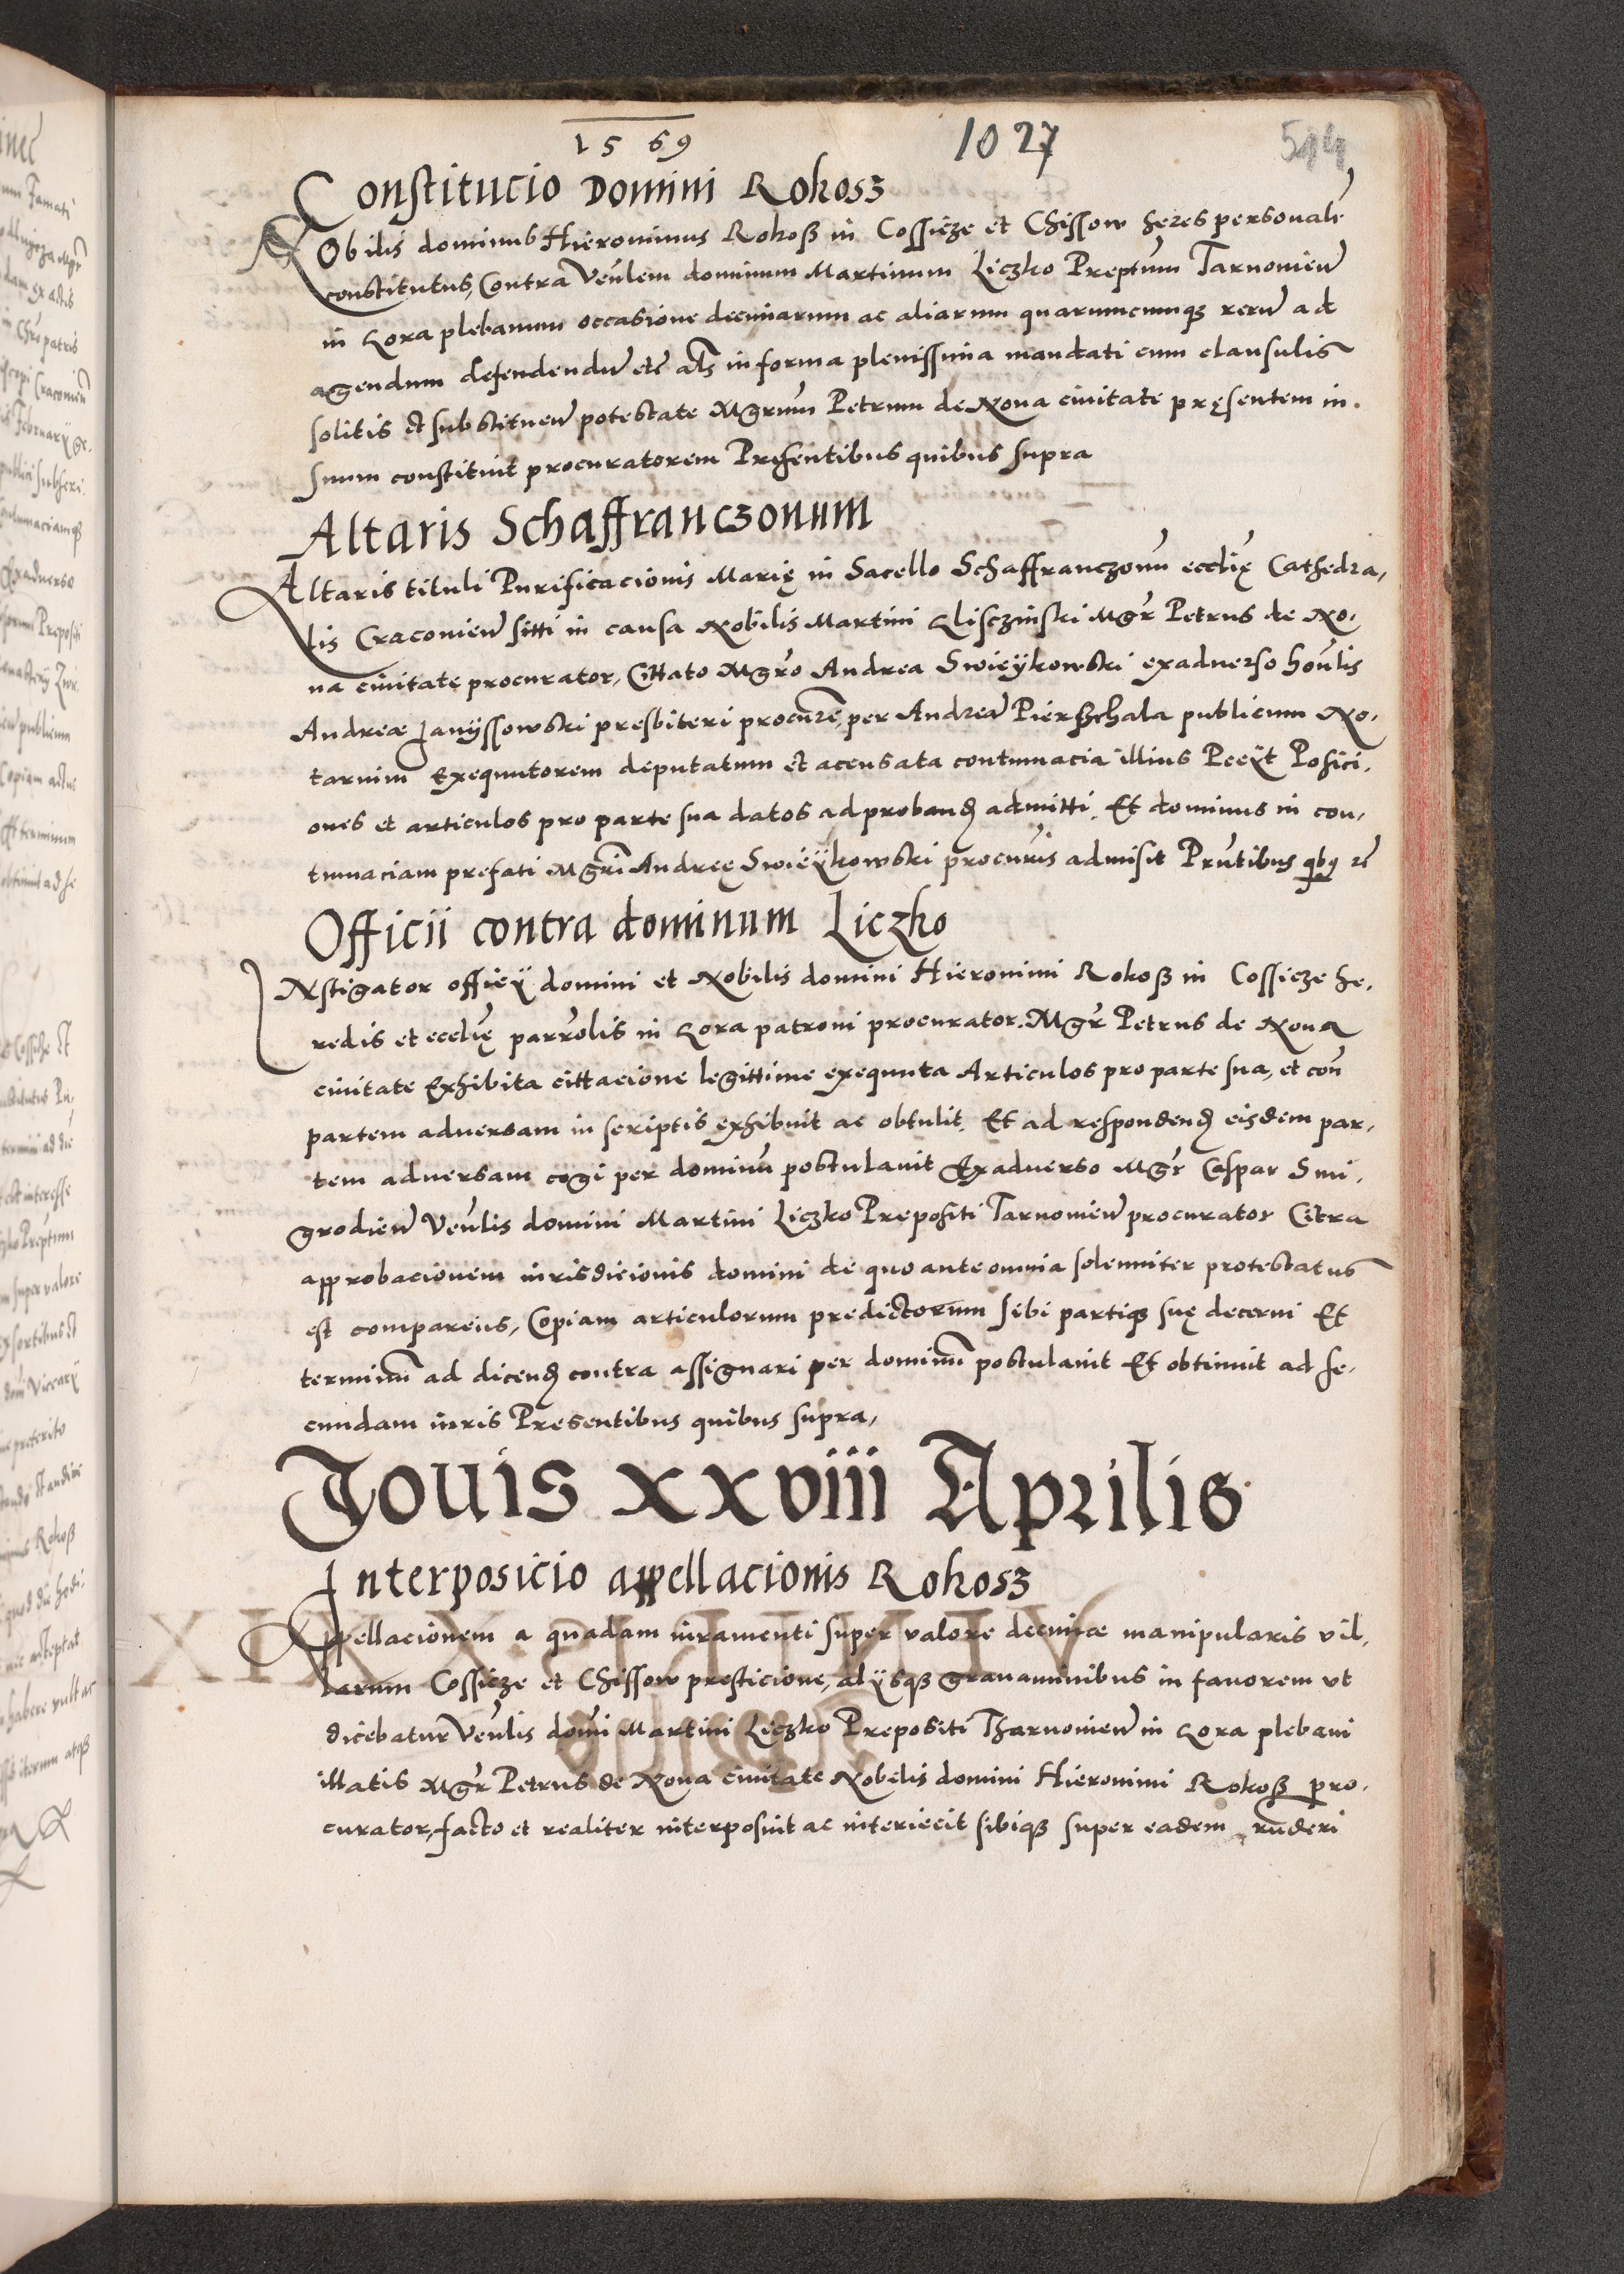 1569
1027
594
Constitucio Domini Rokosz
Nobilis dominus Hieronimus Rokoß in Cossicze et Chissow heres personalr
constitutus, Contra Venlem dominum Martinum Liczko Preptum Tarnouien
in Zora plebanum occasione decimarum ac aliarum quarumcumq3 rerum ad
agendum defendendum etc als in forma plenissima mandati cum clausulis
solitis et substituen potestate Mgrum Petrum de Noua ciuitate presentem in
suum constituit procuratorem Presentibus quibus supra
Altaris Schaffranczonum
Altaris tituli Purificacionis Marię in Sacello Schaffranczonum eccłię Cathedra,
lis Cracouien siti in causa Nobilis Martini Glisczinski Mgr Petrus de No,
ua ciuitate procurator, Cittato Mgro Andrea Swieÿkowski exaduerso honlis
Andreæ Janÿssowski presbiteri procure, per Andream Pierszchala publicum No,
tarium Exequutorem deputatum et acusata contumacia illius Peeÿt Posici,
ones et articulos pro parte sua datos ad proband admitti. Et dominus in con,
tumaciam prefati Mgri Andreę Swieÿkowski procuris admisit Prntibus qb9 rc
Officii contra dominum Liczko
INstigator officÿ domini et Nobilis domini Hieronimi Rokoß in Cossicze he,
redis et eccłię parrolis in Zora patroni procurator. Mgr Petrus de Noua
ciuitate Exhibita cittacione legittime exequuta Articulos pro parte sua, et con
partem aduersam in scriptis exhibuit ac obtulit. Et ad respondend eisdem par,
tem aduersam cogi per dominum postulauit Exaduerso Mgr Caspar Smi,
grodien Venlis domini Martini Liczko Prepositi Tarnouien procurator Citra
approbacionem iurisdicionis domini de quo ante omnia solenniter protestatus
est comparens, Copiam articulorum predictorum sibi partiq3 suę decerni Et
terminum ad dicend contra assignari per dominum postulauit Et obtinuit ad se,
cundam iuris Presentibus quibus supra,
Jouis xxviii Aprilis
Interposicio appellacionis Rokosz
Appellacionem a quadam iuramenti super valore decimæ manipularis vil,
larum Cossicze et Chissow presticione, alÿsq3 grauaminibus in fauorem vt
dicebatur Venlis domi Martini Liczko Prepositi Tharnouien in Zora plebani
illatis Mgr Petrus de Noua ciuitate Nobilis domini Hieronimi Rokoß pro,
curator, facto et realiter interposuit ac interiecit sibiq3 super eadem rnderi